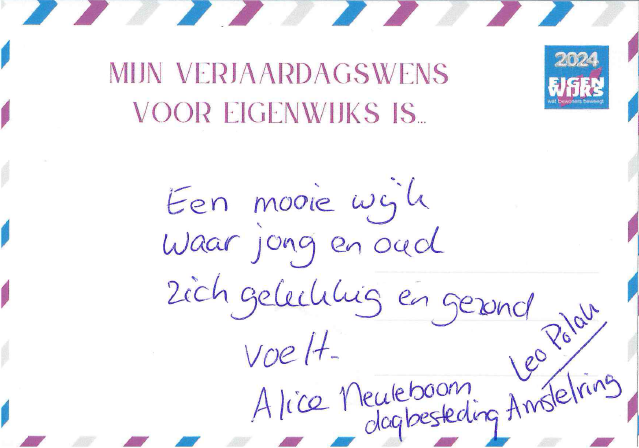 MIJN VERJAARDAGSWENS
VOOR EIGENWIJKS IS...
2024
EIGEN
WIJKS
wat bewoners beweegt
Een mooie wijk
waar jong en oud
zich gelukkig en gezond
voelt.
Leo Polak
Alice Meuleboom
dagbesteding Amstelring